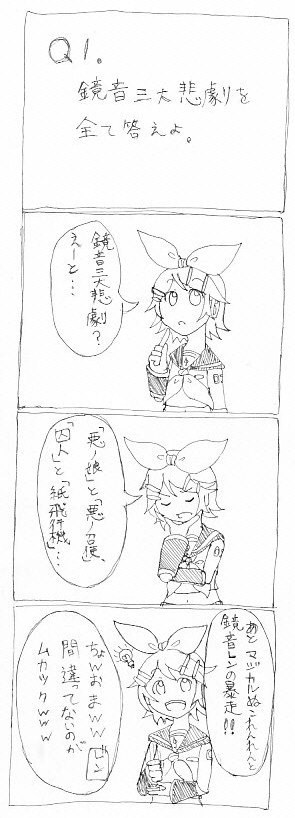 Q1。
鏡音三大悲劇を
全て答えよ。
鏡音三大悲劇?
えーと…
「悪ノ娘」と「悪ノ召使」、
「囚人」と「紙飛行機」…
あと マジカルぬこれんれんと
鏡音レンの暴走!!
ピン
ちょwおまww
間違ってないのが
ムカツクwww